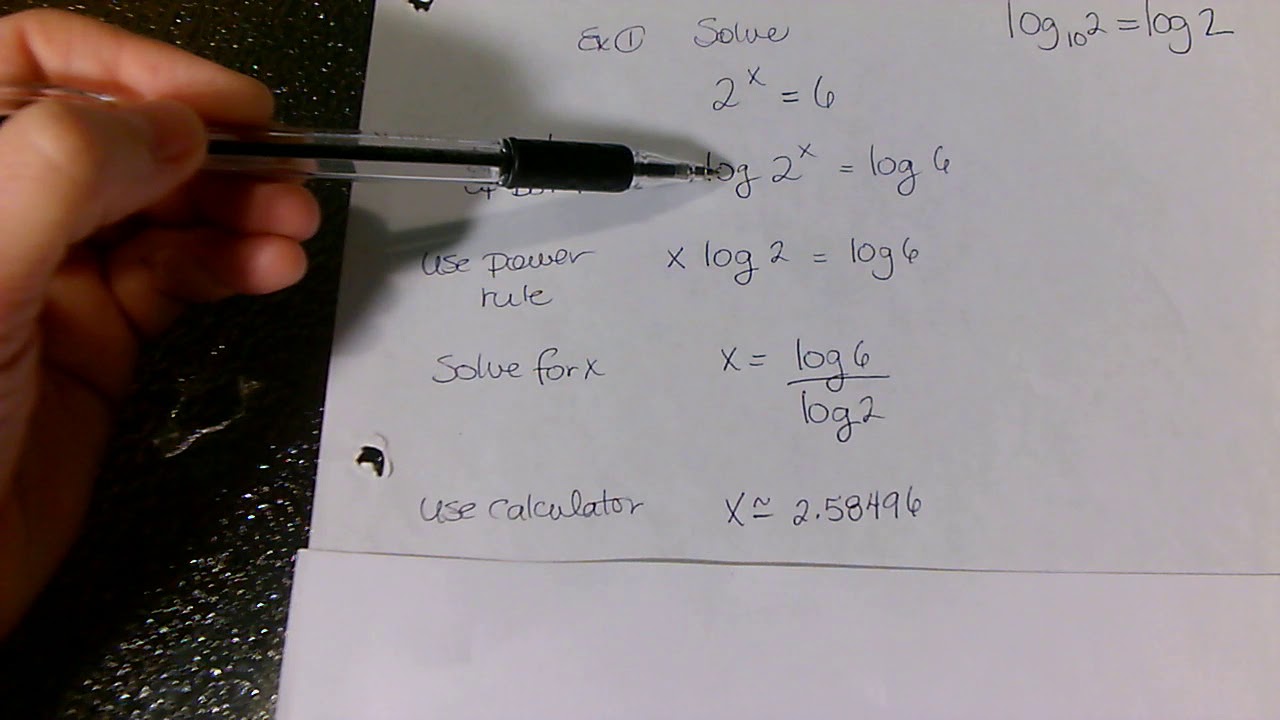 Ex ① Solve
log₁₀2 = log 2
2ˣ = 6
log 2ˣ = log 6
use power
rule
x log 2 = log 6
Solve for x
x = log 6
log 2
use calculator
x ≃ 2.58496